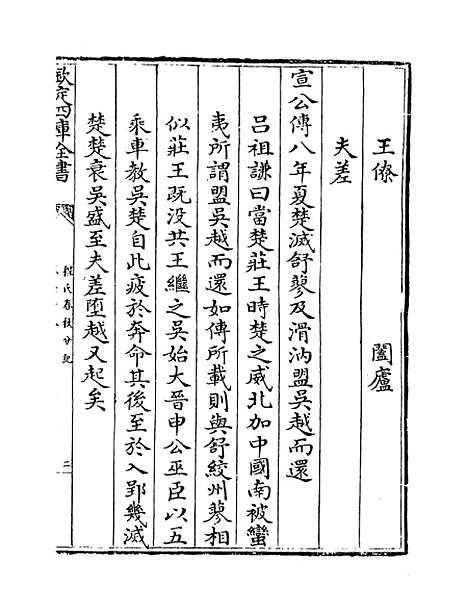 王僚 闔廬
夫差
宣公傳八年夏楚滅舒蓼及滑汭盟吳越而還
吕祖謙曰當楚莊王時楚之威北加中國南被蠻
夷所謂盟吳越而還如傳所載則與舒絞州蓼相
似莊王既没共王繼之吳始大晉申公巫臣以五
乘車教吳楚自此疲於奔命其後至於入郢幾滅
楚楚衰吳盛至夫差堕越又起矣
欽定四庫全書
程氏春秋分記
二